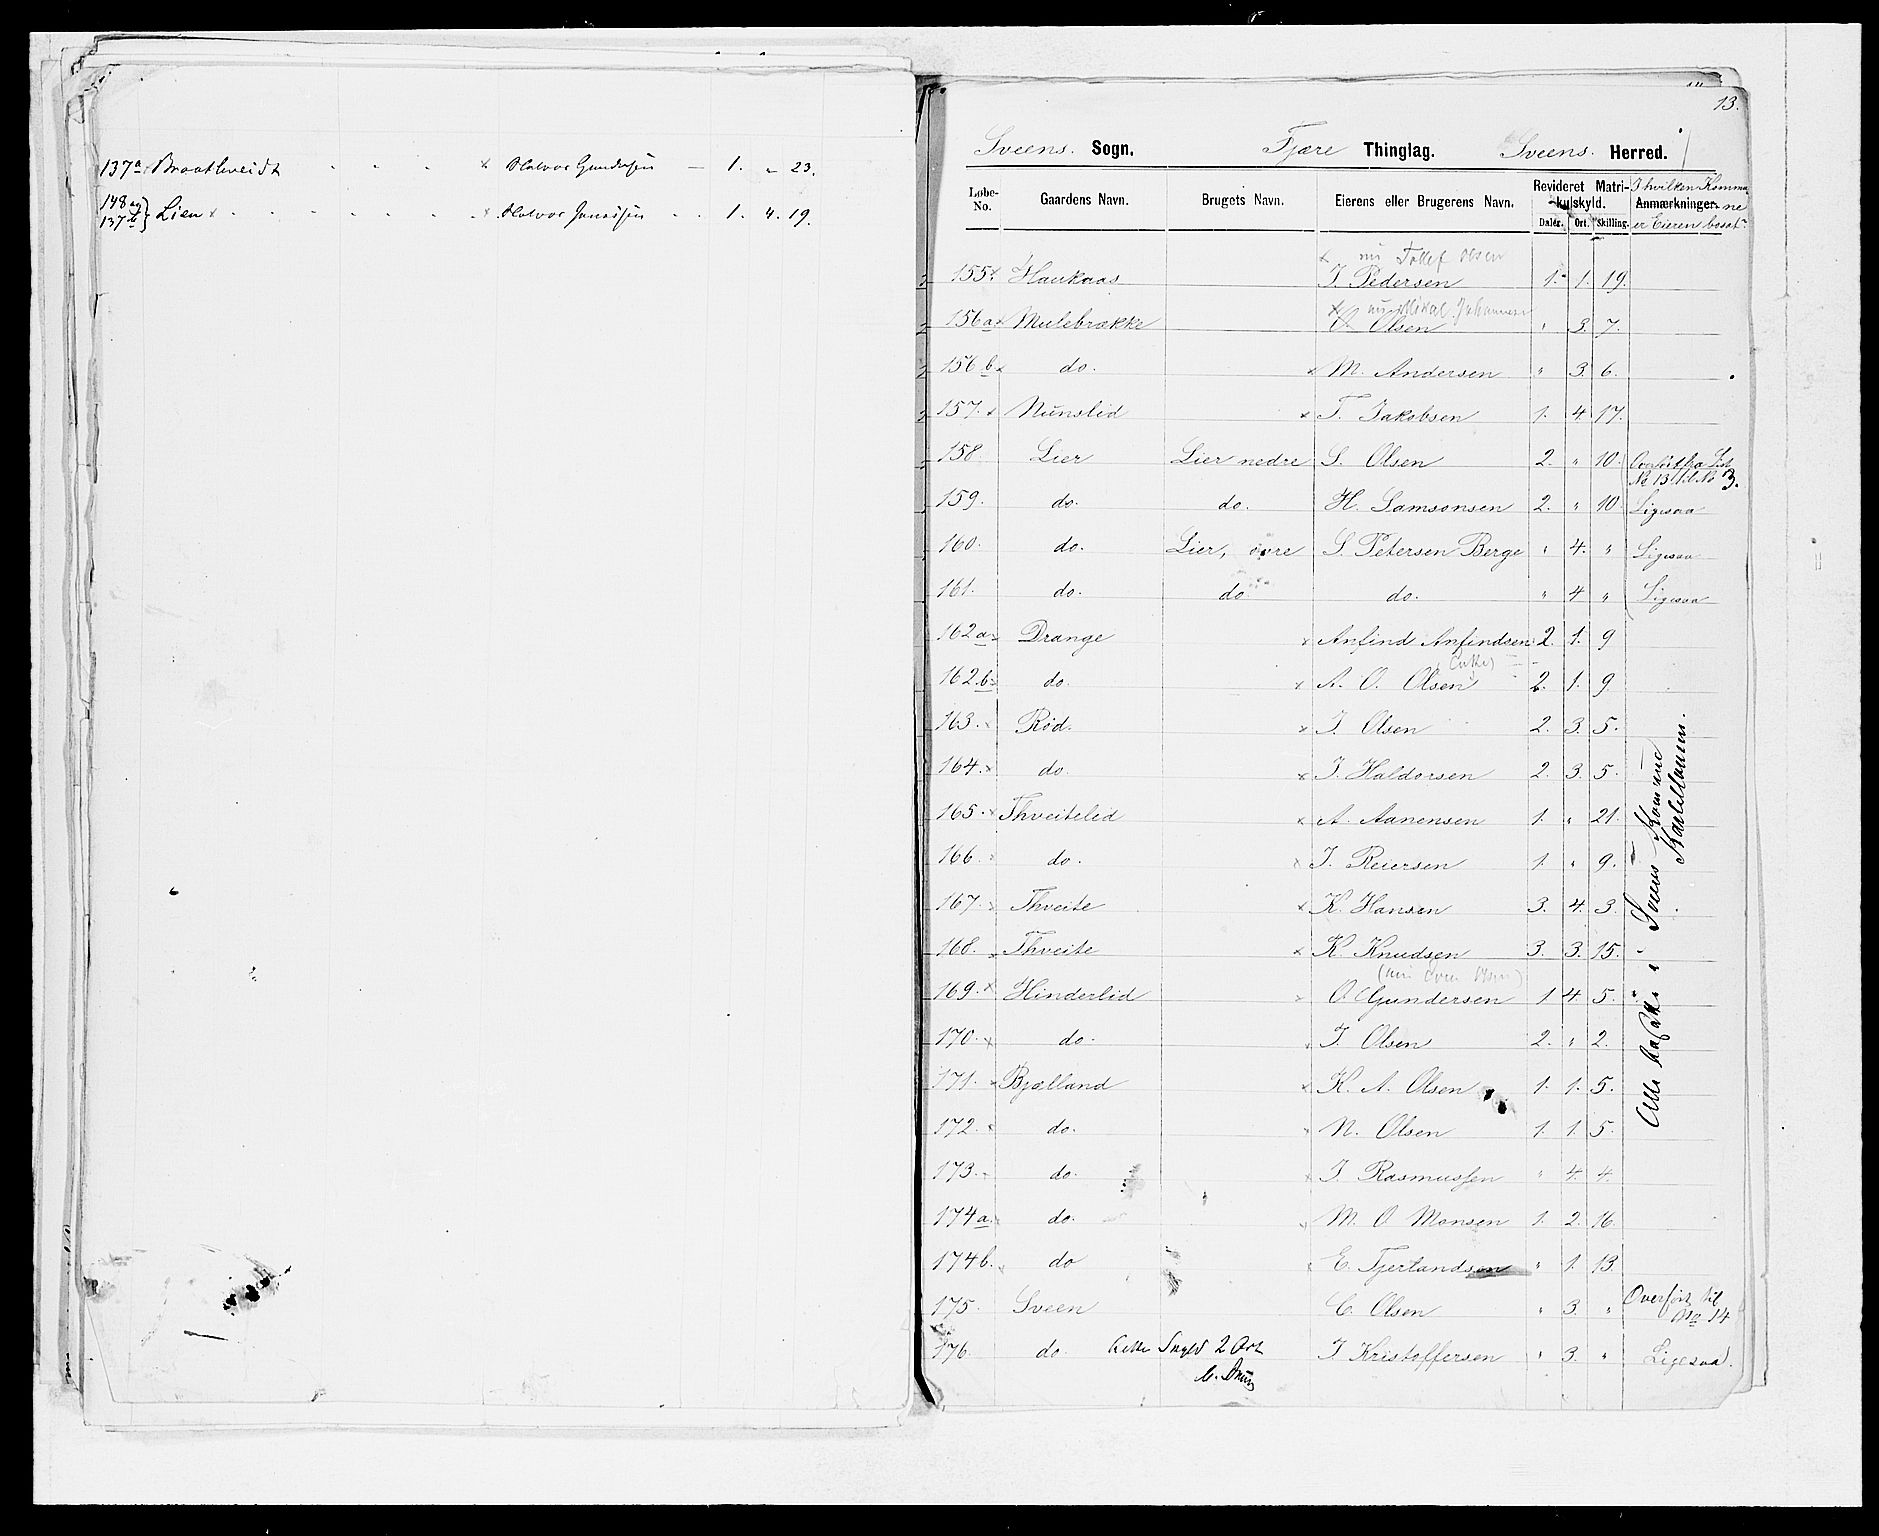 137a Braathveidt - - - x Halvor Gundersen — 1. " 23.
148 og
137b } Lien x - - - - - - x Halvor Jonassen - - 1. 4. 19.
13.
Sveens Sogn. Fjære Thinglag. Sveens Herred.
Løbe-No. Gaardens Navn. Brugets Navn. Eierens eller Brugerens Navn. Revideret Matrikulskyld. Daler. Ort. Skilling. Anmærkninger.
I hvilken Kommune er Eieren bosat
x nu Tollef Olsen
155. x Haukaas J Pedersen 1. 1. 19.
x nu Mikal Johannesen
156a x Mulebrække O Olsen " 3. 7.
156b x do. x M. Andersen " 3. 6.
157. x Nunslid x T. Jakobsen 1. 4. 17.
158. Lier Lier nedre S. Olsen 2. " 10. Overført fra List No 13 til No 3.
159. do. do. H. Samsonsen 2. " 10. Ligesaa
160. do. Lier, övre S. Petersen Berge " 4. " Ligesaa
161. do. do do. " 4 " Ligesaa
162a x Drange x Anfind Anfindsen 2. 1. 9
(Enke)
162b x do. x A. O. Olsen 2. 1. 9.
163. x Rød. x J. Olsen 2. 3. 5.
164. x do. x J. Haldorsen 2. 3. 5.
165. x Thveitelid x A. Aanensen 1. " 21.
166. do. x J. Reiersen 1. " 9.
167. x Thveite x K. Hansen 3. 4. 3.
168. x Thveite x K. Knudsen 3. 3. 15.
169. x Hinderlid x O Gundersen 1 4. 5.
170. x do. x J. Olsen 2. " 2.
171. x Bjælland x K. A. Olsen 1. 1. 5.
172. x do. x N. Olsen 1. 1. 5.
173. do. x J. Rasmussen " 4. 4.
174a. x do. x M. O Monsen 1. 2. 16.
174b. x do x E. Tjerlandsen " 1. 13
175. Sveen C. Olsen " 3. " Overført til No 14
176. do. Skyld 2 Ort J Kristoffersen " 3. " Ligesaa.
Alle bosatte i Sveens Kommune